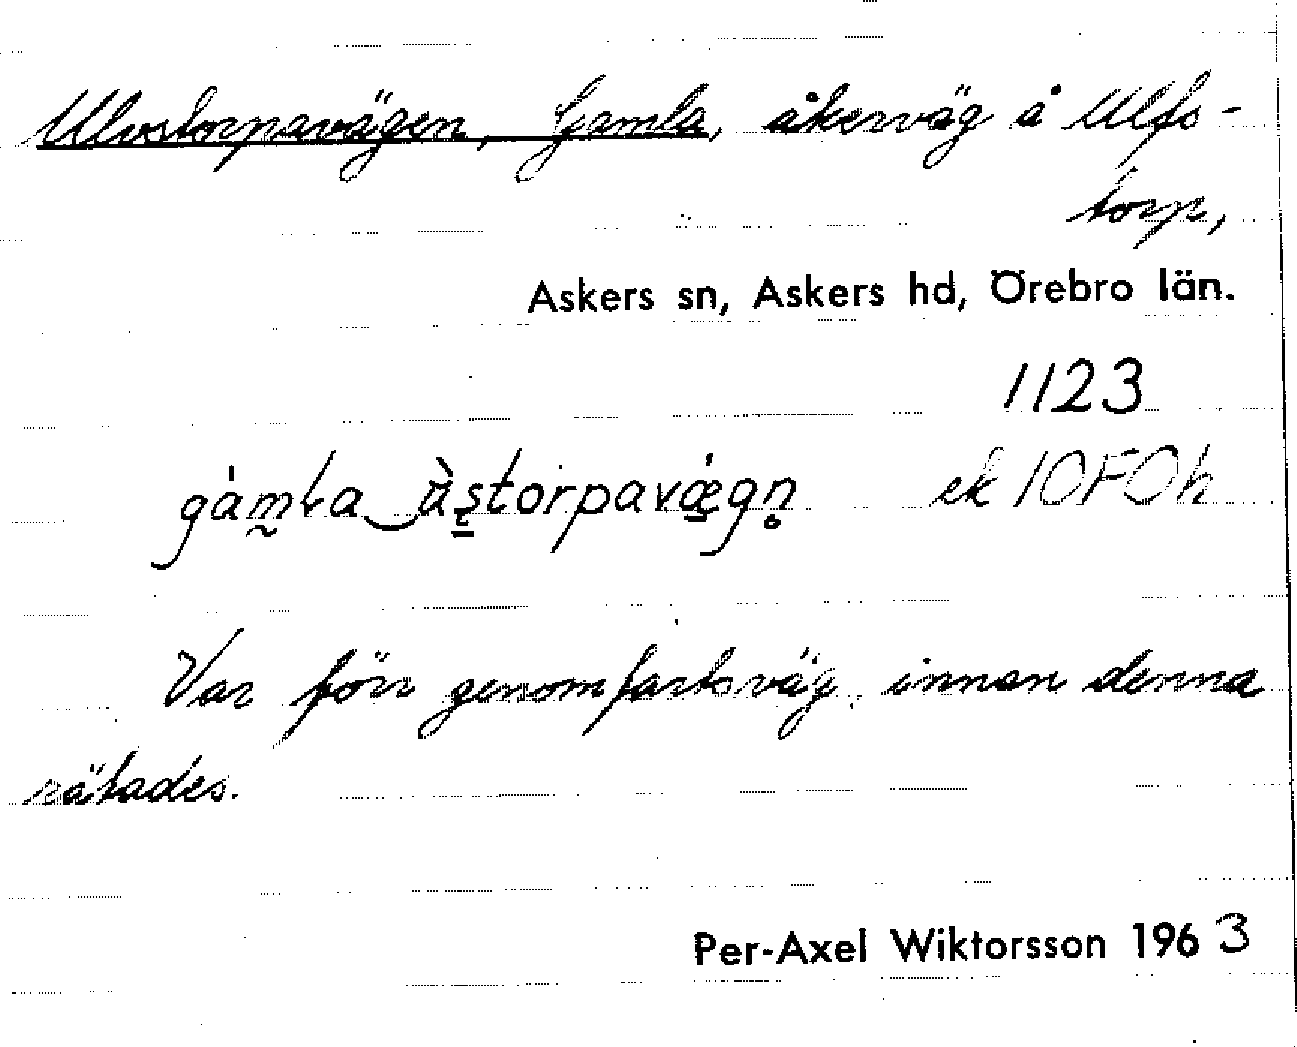 Ulvstorpavägen, Gamla, åkerväg å Ulfs-
torp,
Askers sn, Askers hd, Örebro län.
1123
gàmḷa ùstorpavǽgn̥ ek 10F0h
Var förr genomfartsväg, innan denna
rätades.
Per-Axel Wiktorsson 1963